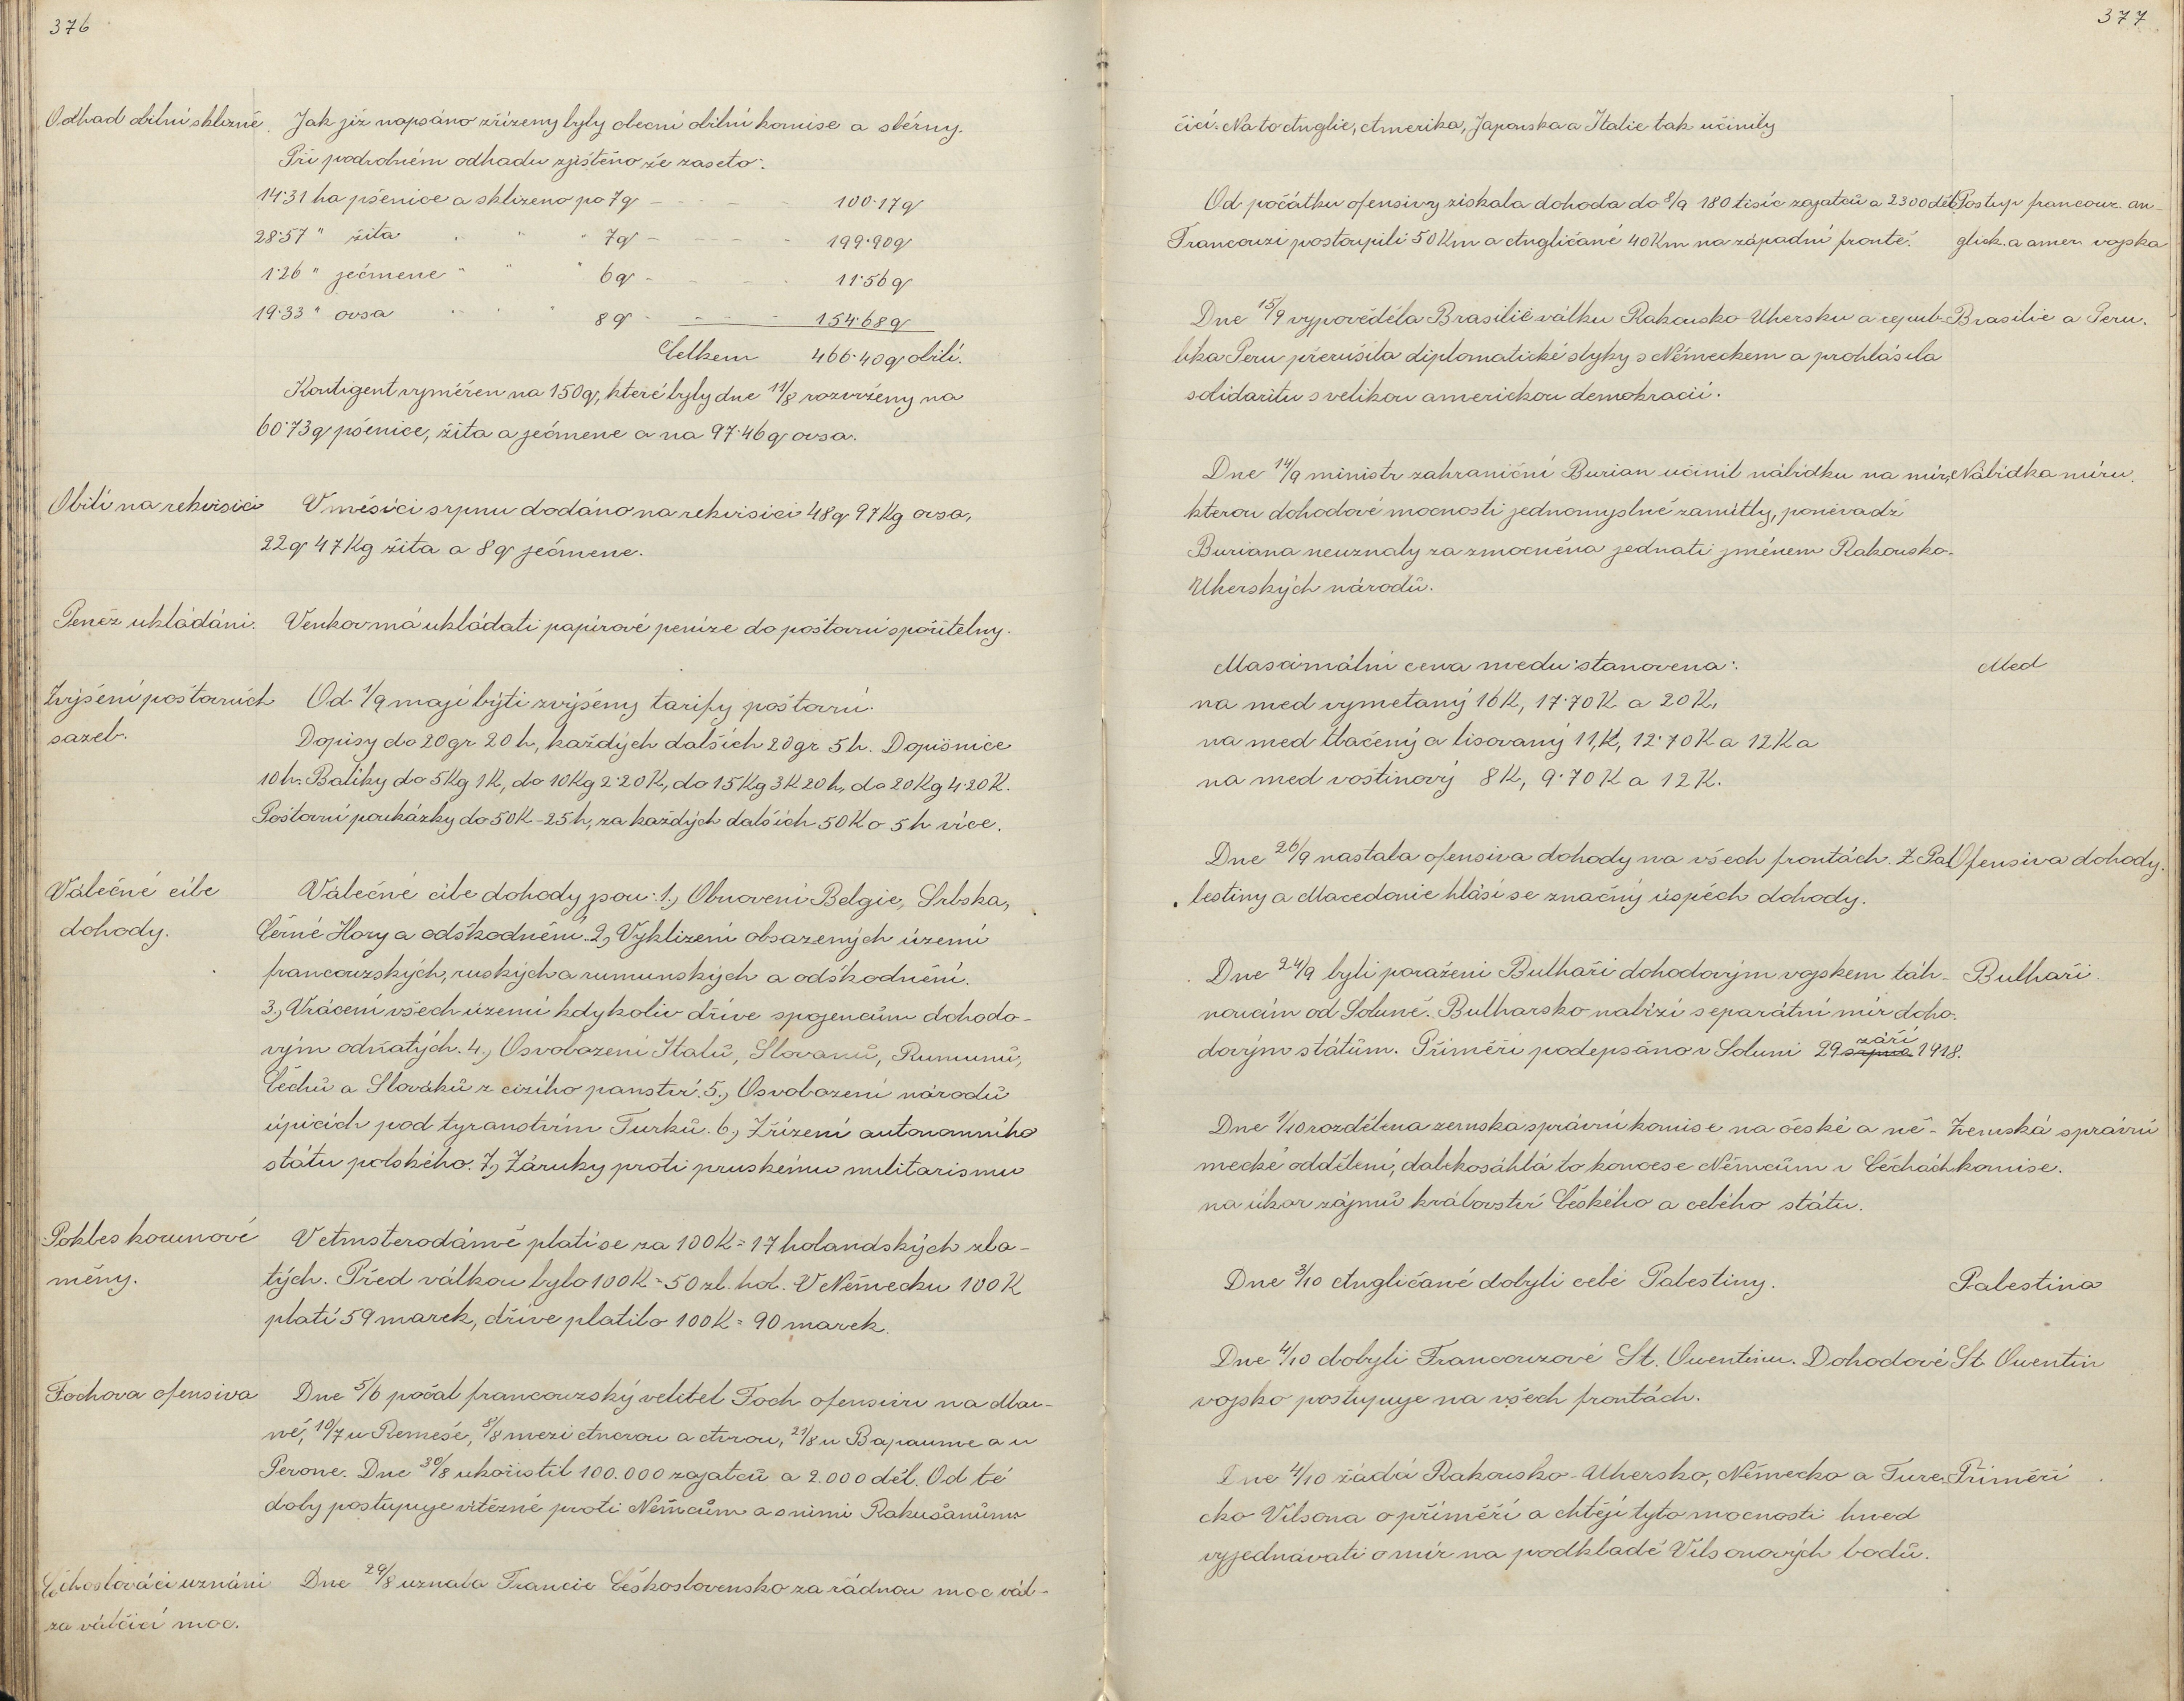 376
Odhad obilní sklizně. Jak již napsáno zřízeny byly obecní obilní komise a sběrny.
Při podrobném odhadu zjištěno že zaseto:
14·31 ha pšenice a sklizeno po 7q - - - - 100·17q
28·57 " žita " " " 7q - - - - 199·90q
1·26 " ječmene " " " 6q - - - - 11·56q
19·33 " ovsa " " " 8q - - - - 154·68q
Celkem 466·40q obilí.
Kontigent vyměřen na 150q, které byly dne 11/8 rozvrženy na
60·73q pšenice, žita a ječmene a na 97·46q ovsa.
Obilí na rekvisici V měsíci srpnu dodáno na rekvisici 48q 97Kg ovsa,
22q 47Kg žita a 8q ječmene.
Peněz ukládání. Venkov má ukládati papírové peníze do poštovní spořitelny.
Zvýšení poštovních Od 1/9 mají býti zvýšeny tarify poštovní.
sazeb. Dopisy do 20gr 20h, každých dalších 20gr 5h. Dopisnice
10h. Balíky do 5Kg 1K, do 10Kg 2·20K, do 15Kg 3K 20h, do 20Kg 4·20K.
Poštovní poukázky do 50K - 25h, za každých dalších 50K o 5h více.
Válečné cíle Válečné cíle dohody jsou: 1., Obnovení Belgie, Srbska,
dohody. Černé Hory a odškodnění. 2., Vyklizení obsazených území
francouzských, ruských a rumunských a odškodnění.
3., Vrácení všech území kdykoliv dříve spojencům dohodo-
vým odňatých. 4., Osvobození Italů, Slovanů, Rumunů,
Čechů a Slováků z cizího panství. 5., Osvobození národů
úpících pod tyranstvím Turků. 6., Zřízení autonomního
státu polského. 7., Záruky proti pruskému militarismu
Pokles korunové V Amsterodámě platí se za 100K = 17 holandských zla-
měny. tých. Před válkou bylo 100K = 50 zl. hol. V Německu 100K
platí 59 marek, dříve platilo 100K = 90 marek.
Fochova ofensiva Dne 5/6 počal francouzský velitel Foch ofensivu na Mar-
ně, 10/7 u Remeše, 8/8 mezi Ancrou a Avrou, 21/8 u Bapaume a u
Perone. Dne 30/8 ukořistil 100.000 zajatců a 2.000 děl. Od té
doby postupuje vítězně proti Němcům a s nimi Rakušanům
Čchoslováci uznáni Dne 29/8 uznala Francie Československo za řádnou moc vál-
za válčící moc.
377
čící. Na to Anglie, Amerika, Japonska a Italie tak učinily
Od počátku ofensivy získala dohoda do 8/9 180 tisíc zajatců a 2300 děl. Postup francouz. an-
Francouzi postoupili 50Km a Angličané 40Km na západní frontě. glick. a amer. vojska
Dne 15/9 vypověděla Brasilie válku Rakousko-Uhersku a repub- Brasilie a Peru.
lika Peru přerušila diplomatické styky s Německem a prohlásila
solidaritu s velikou americkou demokracií.
Dne 14/9 ministr zahraniční Burian učinil nabídku na mír, Nabídka míru.
kterou dohodové mocnosti jednomyslně zamítly, poněvadž
Buriana neuznaly za zmocněna jednati jménem Rakousko-
Uherských národů.
Maximální cena medu stanovena: Med
na med vymetaný 16K, 17·70K a 20K,
na med tlačený a lisovaný 11,K, 12·70K a 12K a
na med voštinový 8K, 9·70K a 12K.
Dne 26/9 nastala ofensiva dohody na všech frontách. Z Pa- Ofensiva dohody.
lestiny a Macedonie hlásí se značný úspěch dohody.
Dne 24/9 byli poraženi Bulhaři dohodovým vojskem táh- Bulhaři.
noucím od Soluně. Bulharsko nabízí separátní mír doho-
dovým státům. Příměří podepsáno v Soluni 29 srpna září 1918.
Dne 1/10 rozdělena zemská správní komise na české a ně- Zemská správní
mecké oddělení, dalekosáhlá to koncese Němcům v Čechách komise.
na úkor zájmů království Českého a celého státu.
Dne 3/10 Angličané dobyli celé Palestiny. Palestina
Dne 4/10 dobyli Francouzové St. Quentinu. Dohodové St. Quentin
vojsko postupuje na všech frontách.
Dne 4/10 žádá Rakousko-Uhersko, Německo a Ture- Příměří
cko Vilsona o příměří a chtějí tyto mocnosti hned
vyjednávati o mír na podkladě Vilsonových bodů.